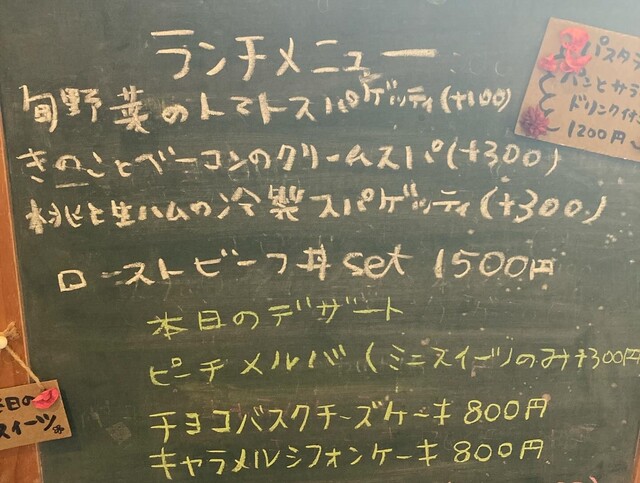 ランチメニュー
旬野菜のトマトスパゲッティ(+100)
きのことベーコンのクリームスパ(+300)
桃と生ハムの冷製スパゲッティ(+300)
ローストビーフ丼set 1500円
本日のデザート
ピーチメルバ(ミニスイーツのみ+300円
チョコバスクチーズケーキ800円
キャラメルシフォンケーキ800円
パスタラ
パンとサラ
ドリンク付
1200円
本日の
スイーツ